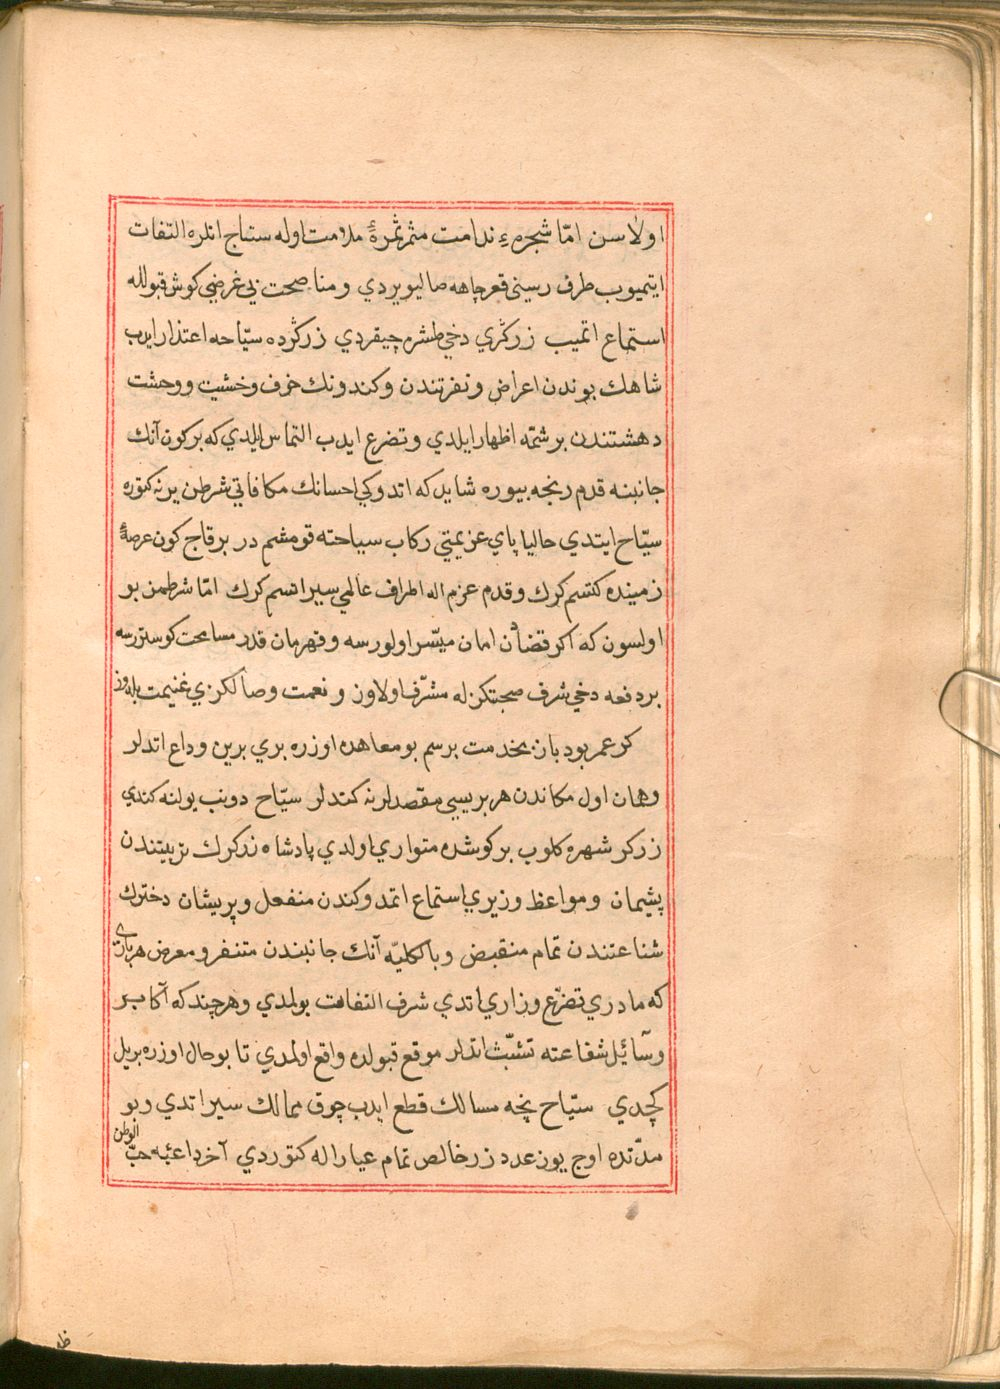 اولاسن امّا شجرهٔ ندامت مثمر ثمرهٔ ملامت اوله ستّاج انلره التفات
ايتميوب طرف رسنى قعر چاهه صاليويردي ومناصحت بى غرضي كوش قبولله
استماع اتميب زركري دخي طشره چيقردي زركرده سيّاحه اعتذار ايدب
شاهك بوندن اعراض ونفرتندن وكندونك خوف وخشيت ووحشت
دهشتندن بر شمّه اظهار ايلدي وتضرع ايدب التماس ايلدي كه بر كون آنك
جانبنه قدم رنجه بيوره شايد كه اتدوكي احسانك مكافاتي شرطن يرنه كتوره
سيّاح ايتدي حاليا پاي عزيمتي ركاب سياحته قومشم در بر قاچ كون عرصهٔ
زمينده كتسم كرك وقدم عزم اله اطراف عالمي سير اتسم كرك امّا شرطمز بو
اولسون كه اكر قضادن امان ميسّر اولورسه وقهرمان قدر مسامحت كوستررسه
بر دفعه دخي شرف صحبتكزله مشرّف اولاوز ونعمت وصالكزي غنيمت بله وز
كر عمر بود باز بخدمت برسم بو معاهده اوزره بري برين وداع اتدلر
وهمان اول مكاندن هر بريسى مقصدلرنه كتدلر سيّاح دونب يولنه كتدي
زركر شهره كلوب بر كوشده متواري اولدي پادشاه زركرك تربيتندن
پشيمان ومواعظ وزيري استماع اتمدوكندن منفعل وپريشان دخترك
شناعتندن تمام منقبض وبالكليّه آنك جانبندن متنفر ومعرض هر باري
كه مادري تضرّع وزاري اتدي شرف التفات بولمدي وهر چند كه آكابر
وسآئل شفاعته تشبّث اتدلر موقع قبولده واقع اولمدي تا بو حال اوزره بر يل
كچدي سيّاح نچه مسالك قطع ايدب چوق ممالك سير اتدي وبو
مدّتده اوج يوز عدد زر خالص تمام عيار اله كتوردي آخر داعيه حبّ الوطن